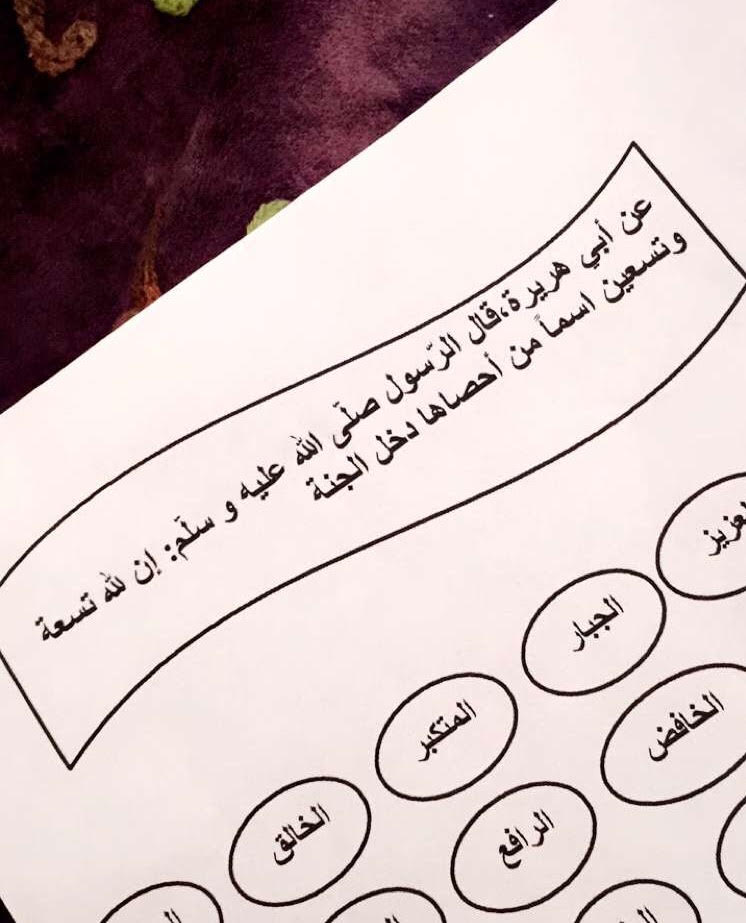 عن أبي هريرة،قال الرّسول صلّى الله عليه و سلّم: إن لله تسعة
وتسعين اسماً من أحصاها دخل الجنة
الجبار
المتكبر
الخالق
الخافض
الرافع